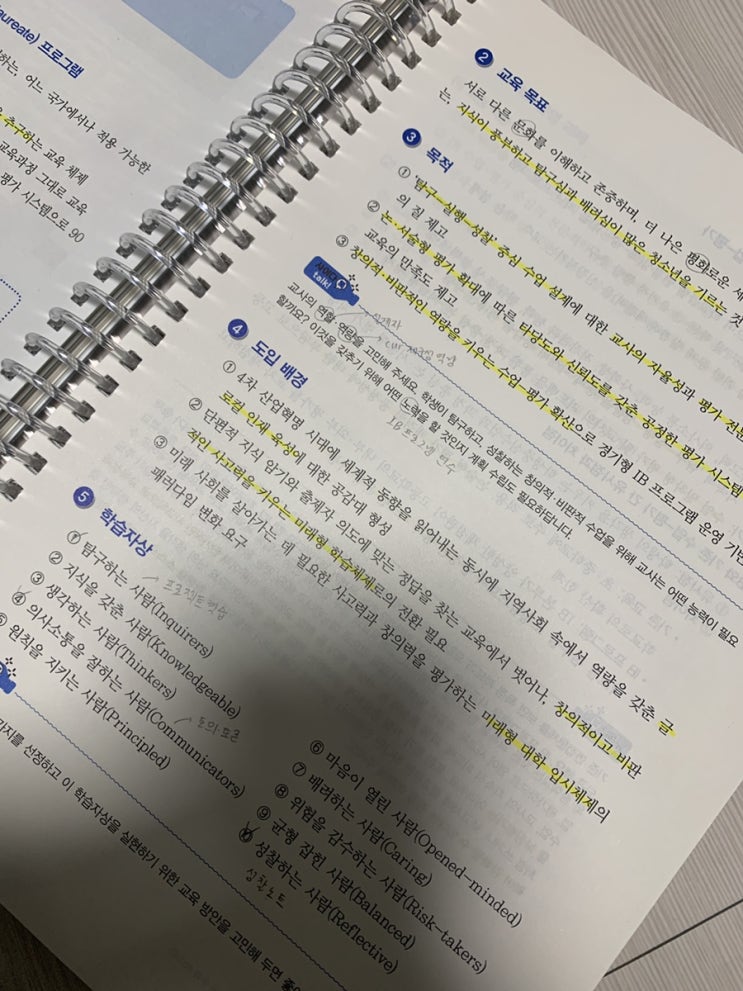 aureate) 프로그램
하는, 어느 국가에서나 적용 가능한
추구하는 교육 체제
교육과정 그대로 교육
평가 시스템으로 90
2 교육 목표
서로 다른 문화를 이해하고 존중하며, 더 나은 평화로운 세
는, 지식이 풍부하고 탐구심과 배려심이 많은 청소년을 기르는 것
3 목적
① '탐구–실행–성찰' 중심 수업 설계에 대한 교사의 자율성과 평가 전문
의 질 제고
② 논·서술형 평가 확대에 따른 타당도와 신뢰도를 갖춘 공정한 평가 시스템
교육의 만족도 제고
③ 창의적·비판적인 역량을 키우는 수업–평가 확산으로 경기형 IB 프로그램 운영 기반
talk!
교사의 역할·역량을 고민해 주세요. 학생이 탐구하고, 성찰하는 창의적·비판적 수업을 위해 교사는 어떤 능력이 필요
할까요? 이것을 갖추기 위해 어떤 노력을 할 것인지 계획 수립도 필요하답니다.
IB 프로그램 연수
4 도입 배경
① 4차 산업혁명 시대에 세계적 동향을 읽어내는 동시에 지역사회 속에서 역량을 갖춘 글
로컬 인재 육성에 대한 공감대 형성
② 단편적 지식 암기와 출제자 의도에 맞는 정답을 찾는 교육에서 벗어나, 창의적이고 비판
적인 사고력을 키우는 미래형 학습체제로의 전환 필요
③ 미래 사회를 살아가는 데 필요한 사고력과 창의력을 평가하는 미래형 대학 입시체제의
패러다임 변화 요구
5 학습자상
① 탐구하는 사람(Inquirers)
→ 프로젝트 학습
② 지식을 갖춘 사람(Knowledgeable)
③ 생각하는 사람(Thinkers)
④ 의사소통을 잘하는 사람(Communicators)
→ 토의·토론
⑤ 원칙을 지키는 사람(Principled)
⑥ 마음이 열린 사람(Opened–minded)
⑦ 배려하는 사람(Caring)
⑧ 위험을 감수하는 사람(Risk–takers)
⑨ 균형 잡힌 사람(Balanced)
⑩ 성찰하는 사람(Reflective)
성찰노트
가지를 선정하고 이 학습자상을 실현하기 위한 교육 방안을 고민해 두면 좋